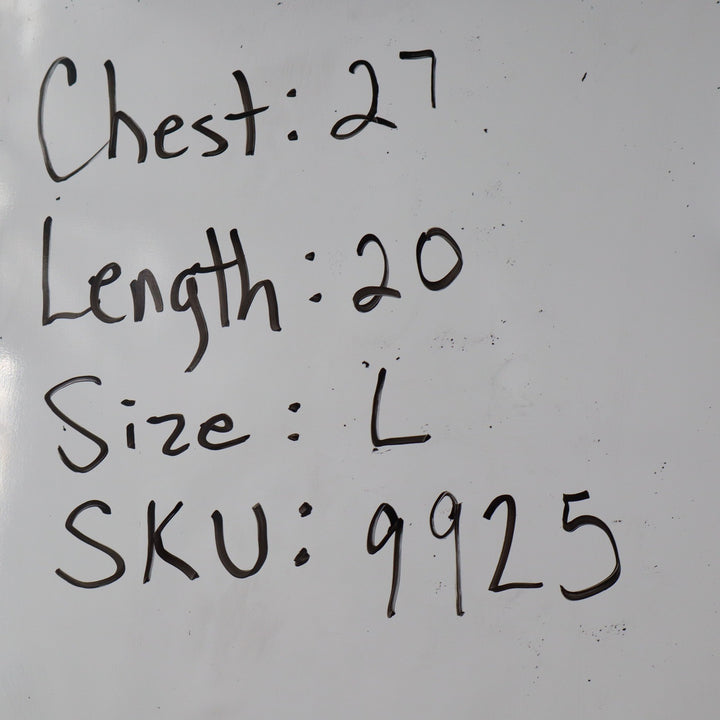 Chest: 27
Length: 20
Size: L
SKU: 9925